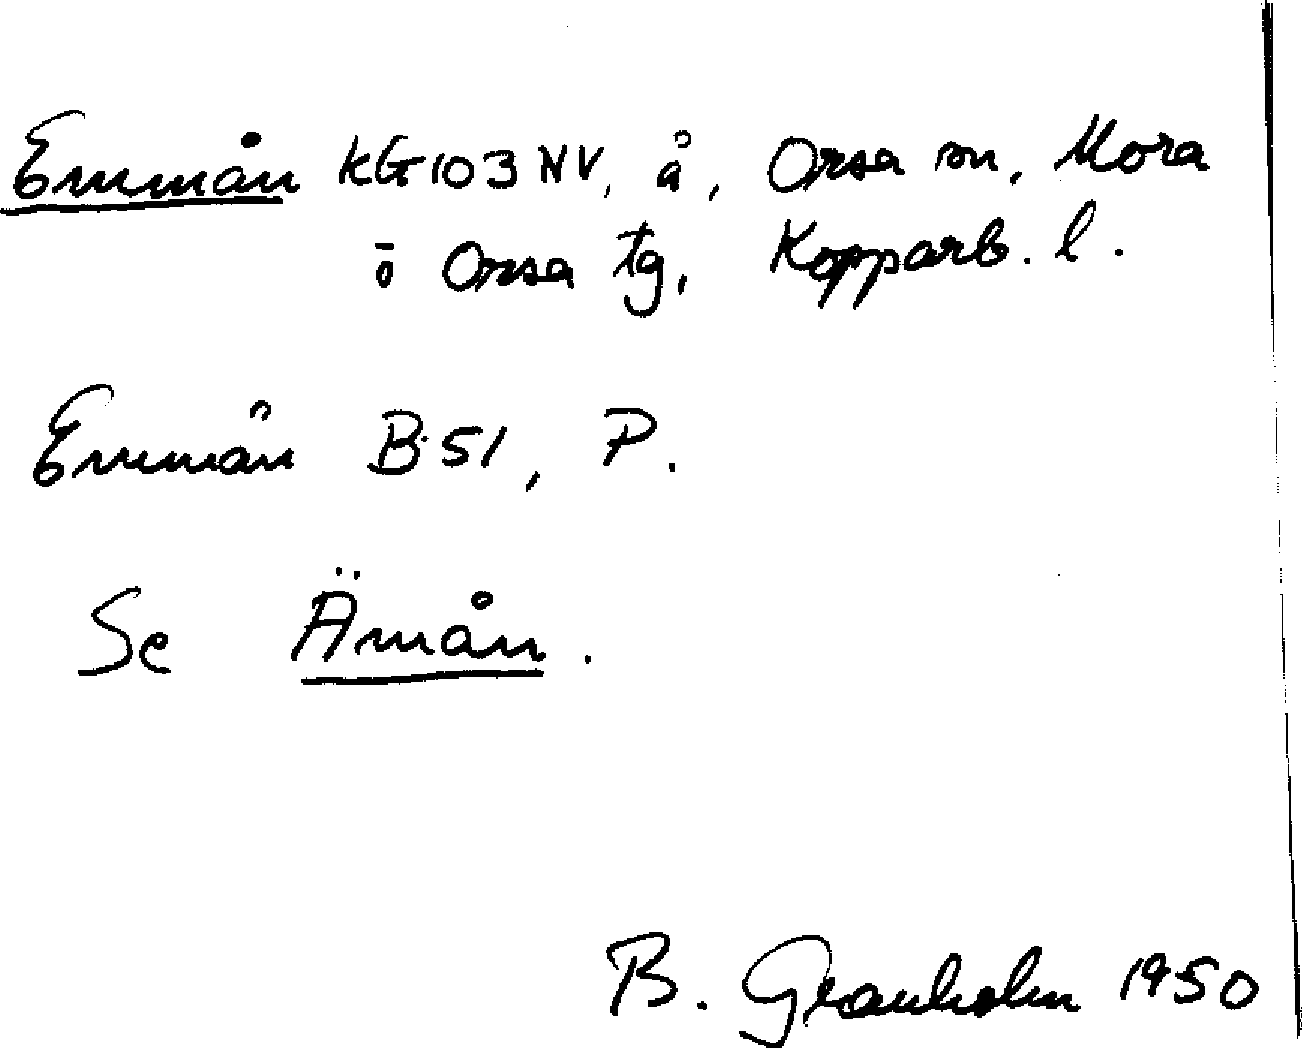 Emmån KG103NV, å, Orsa sn, Mora
o Orsa tg, Kopparb. l.
Emmån B51, P.
Se Ämån.
B. Granholm 1950